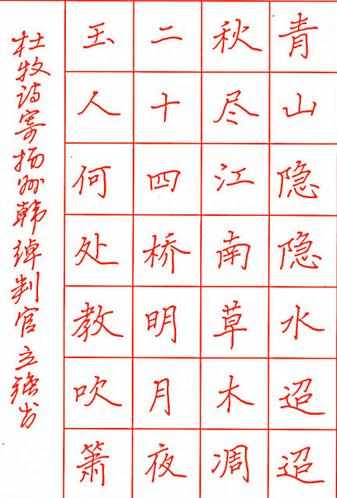 青山隐隐水迢迢
秋尽江南草木凋
二十四桥明月夜
玉人何处教吹箫
杜牧诗寄扬州韩绰判官立强书